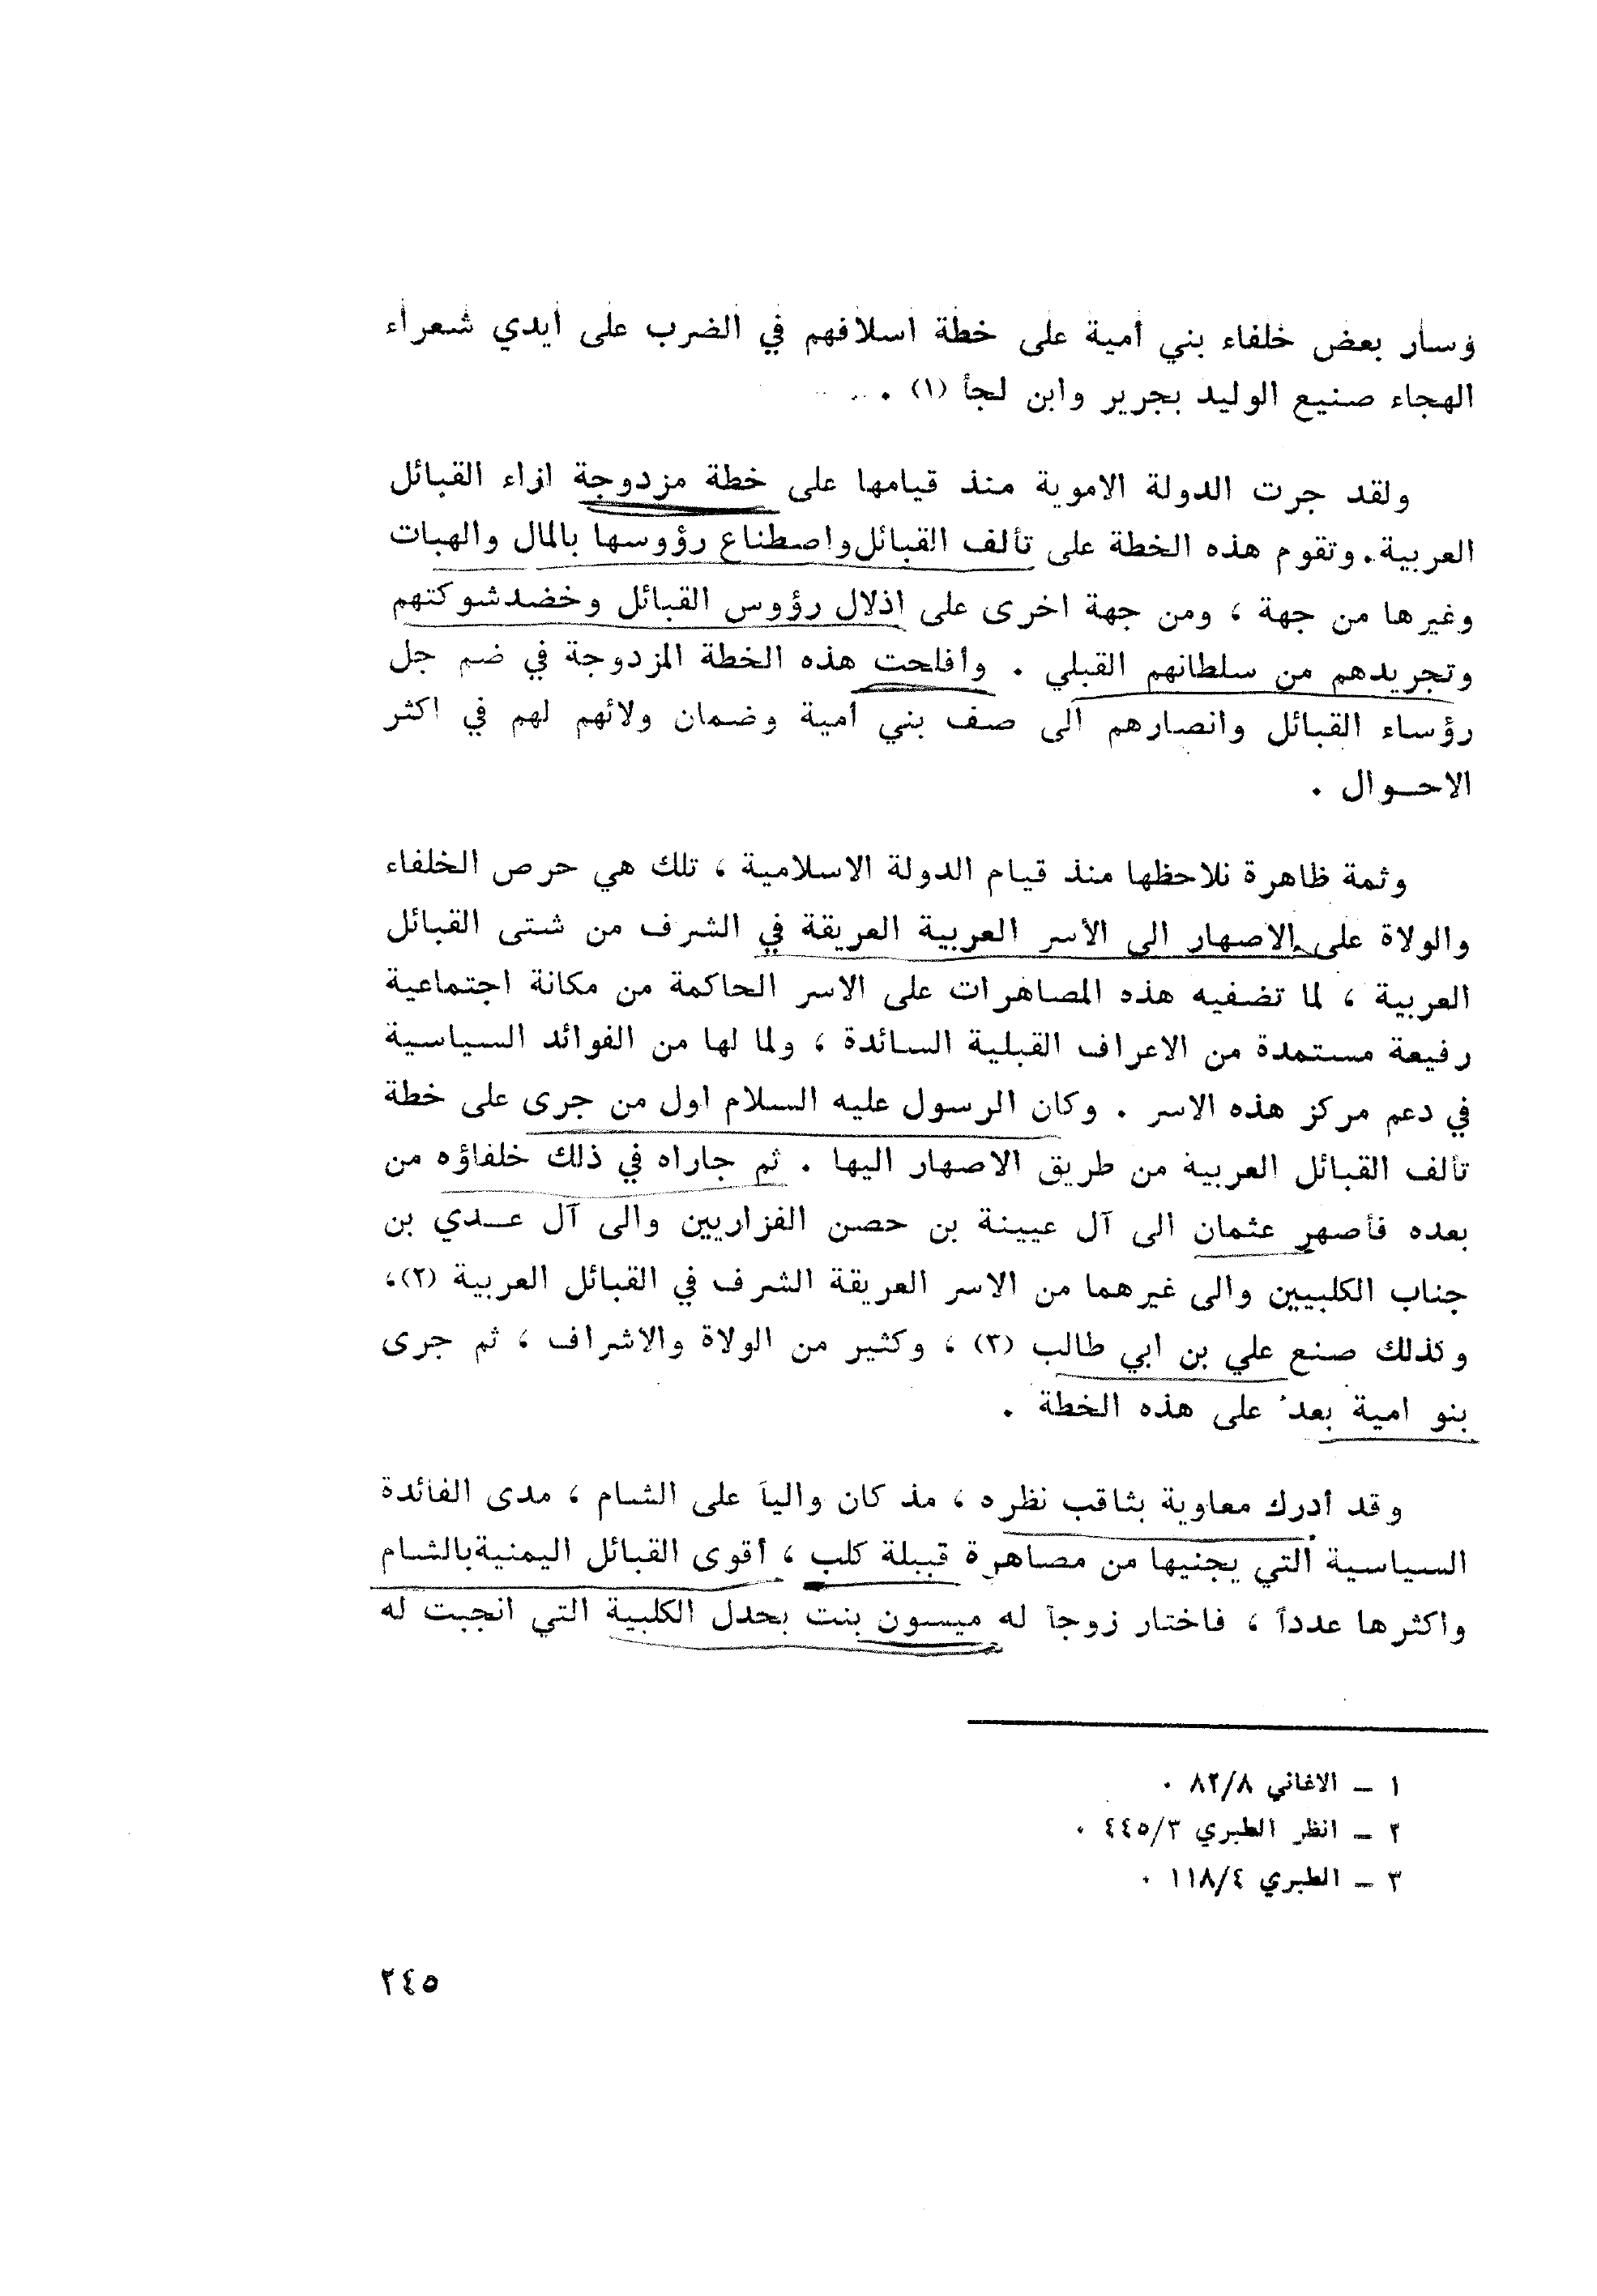 وسار بعض خلفاء بني أمية على خطة اسلافهم في الضرب على ايدي شعراء
الهجاء صنيع الوليد بجرير وابن لجأ (١) .
ولقد جرت الدولة الاموية منذ قيامها على خطة مزدوجة ازاء القبائل
العربية. وتقوم هذه الخطة على تألف القبائل واصطناع رؤوسها بالمال والهبات
وغيرها من جهة ، ومن جهة اخرى على اذلال رؤوس القبائل وخضد شوكتهم
وتجريدهم من سلطانهم القبلي . وأفلحت هذه الخطة المزدوجة في ضم جل
رؤساء القبائل وانصارهم الى صف بني أمية وضمان ولائهم لهم في اكثر
الاحـوال .
وثمة ظاهرة نلاحظها منذ قيام الدولة الاسلامية ، تلك هي حرص الخلفاء
والولاة على الاصهار الى الأسر العربية العريقة في الشرف من شتى القبائل
العربية ، لما تضفيه هذه المصاهرات على الاسر الحاكمة من مكانة اجتماعية
رفيعة مستمدة من الاعراف القبلية السائدة ، ولما لها من الفوائد السياسية
في دعم مركز هذه الاسر . وكان الرسول عليه السلام اول من جرى على خطة
تألف القبائل العربية من طريق الاصهار اليها . ثم جاراه في ذلك خلفاؤه من
بعده فأصهر عثمان الى آل عيينة بن حصن الفزاريين والى آل عـدي بن
جناب الكلبيين والى غيرهما من الاسر العريقة الشرف في القبائل العربية (٢)،
وكذلك صنع علي بن ابي طالب (٣) ، وكثير من الولاة والاشراف ، ثم جرى
بنو امية بعدُ على هذه الخطة .
وقد أدرك معاوية بثاقب نظره ، مذ كان والياً على الشام ، مدى الفائدة
السياسية التي يجنيها من مصاهرة قبيلة كلب ، أقوى القبائل اليمنية بالشام
واكثرها عدداً ، فاختار زوجاً له ميسون بنت بحدل الكلبية التي انجبت له
١ – الاغاني ٨٢/٨ .
٢ – انظر الطبري ٤٤٥/٣ .
٣ – الطبري ١١٨/٤ .
٢٤٥